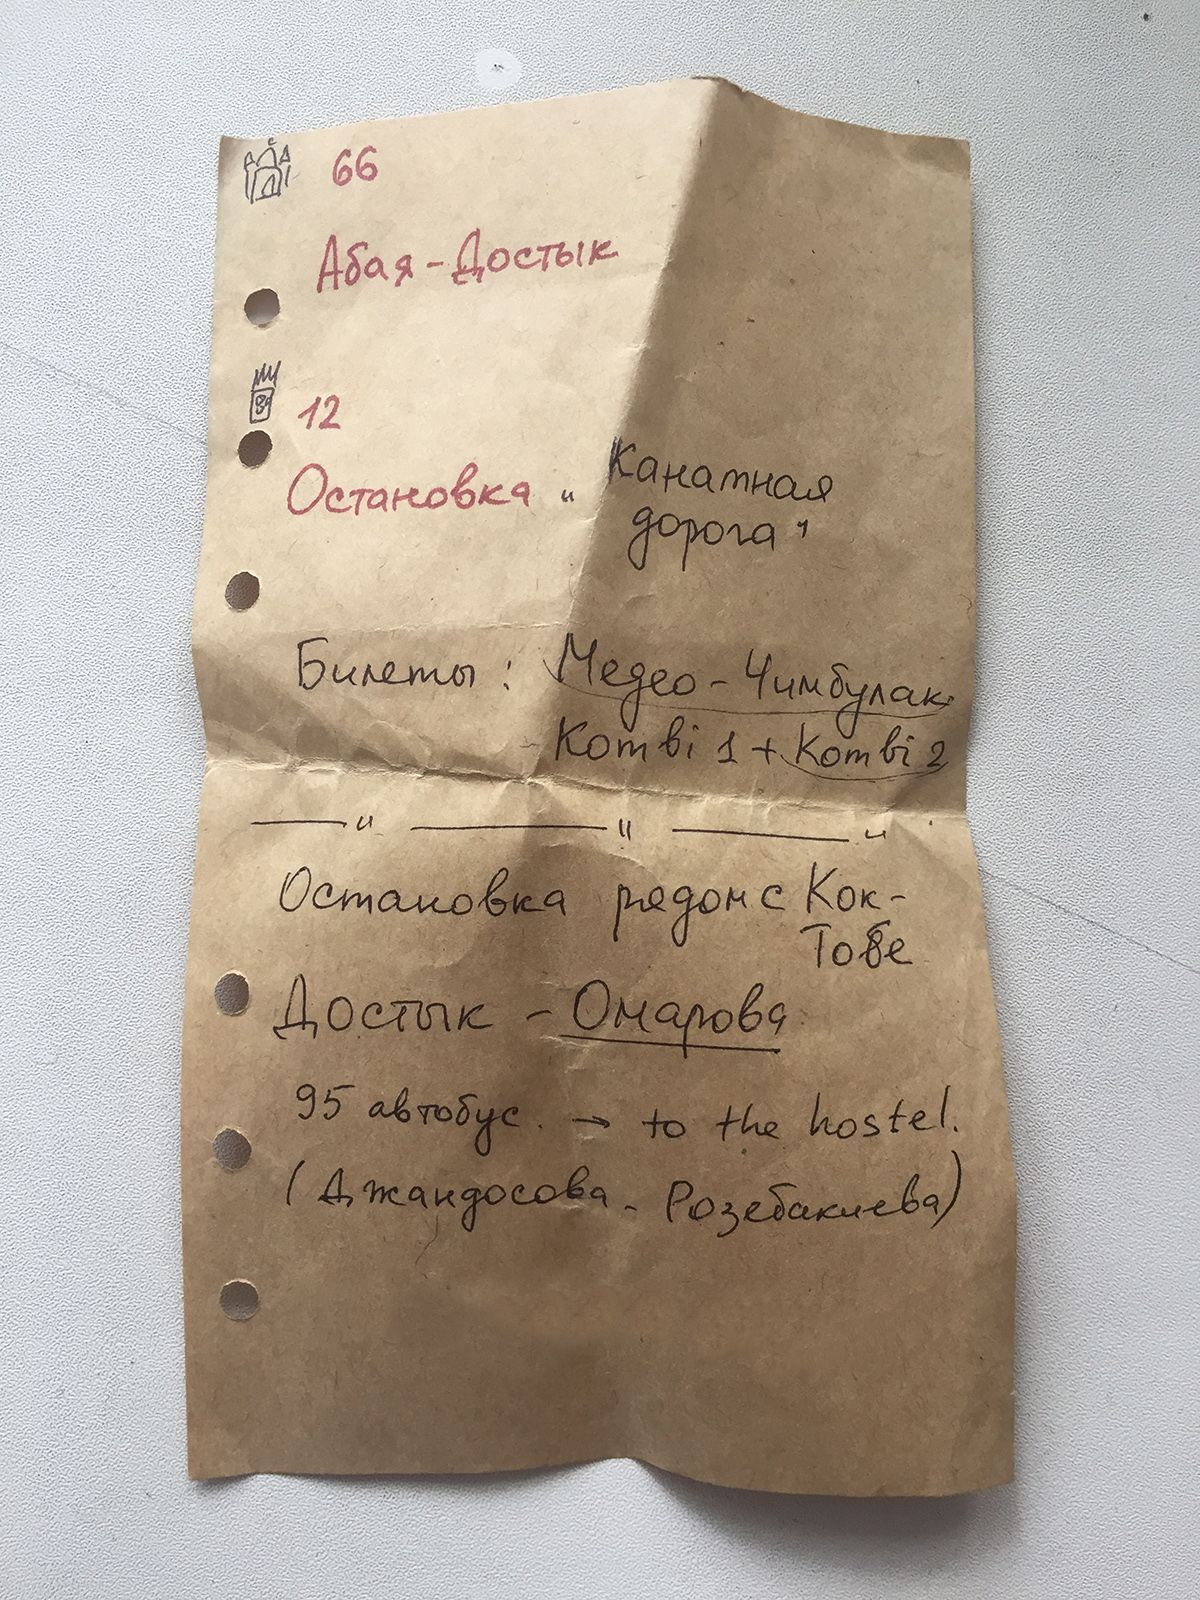 66
Абая - Достык
12
Остановка "Канатная
дорога"
Билеты: Медео - Чимбулак
Kombi 1 + Kombi 2
Остановка рядом с Кок-
Тобе
Достык - Омарова
95 автобус. → to the hostel.
(Джандосова - Розебакиева)